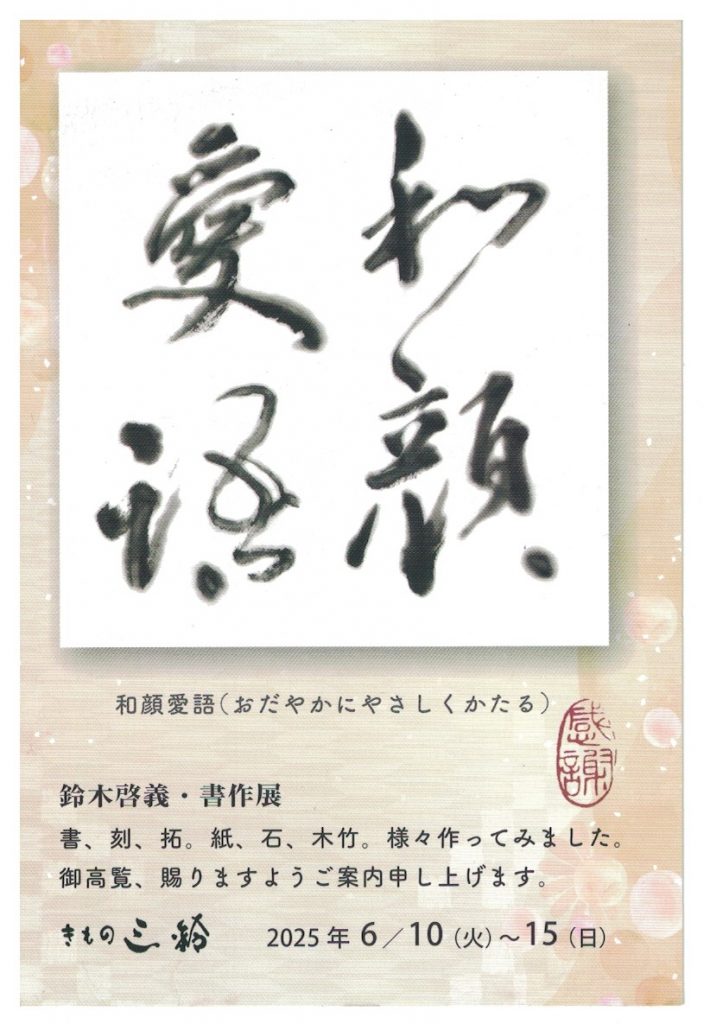 和顔
愛語
和顔愛語（おだやかにやさしくかたる）
感謝
鈴木啓義・書作展
書、刻、拓。紙、石、木竹。様々作ってみました。
御高覧、賜りますようご案内申し上げます。
きもの三鈴
2025年 6／10（火）～15（日）